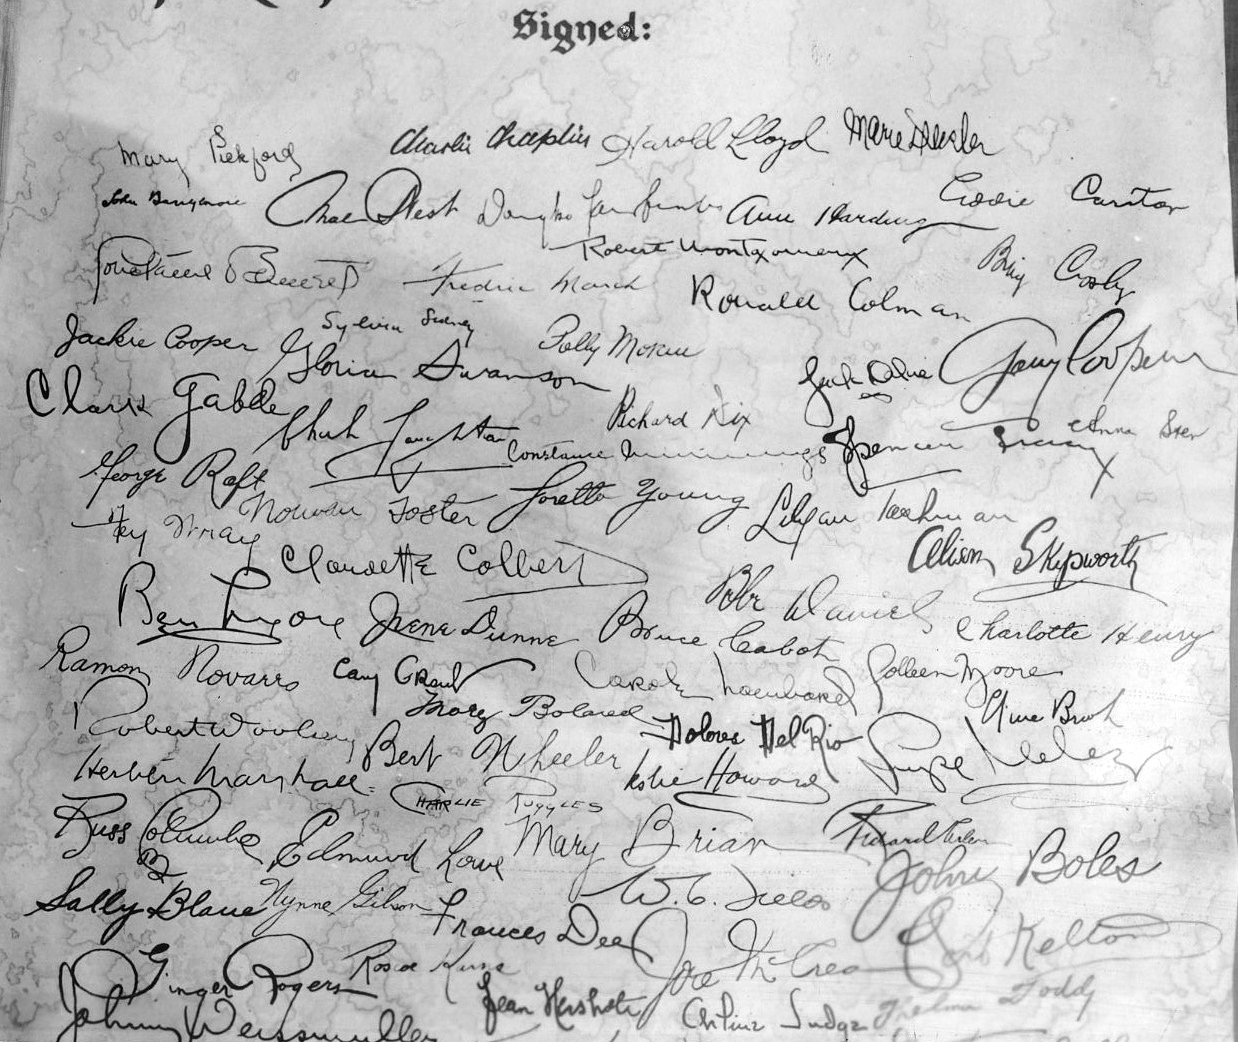 Signed:
Mary Pickford Charlie Chaplin Harold Lloyd Marie Dressler
John Barrymore Mae West Douglas Fairbanks Ann Harding Eddie Cantor
Constance Bennett Fredric March Robert Montgomery Ronald Colman Bing Crosby
Jackie Cooper Sylvia Sidney Polly Moran
Gloria Swanson Jack Oakie Gary Cooper
Clark Gable Richard Dix Anna Sten
Charles Laughton Constance Cummings Spencer Tracy
George Raft Norman Foster Loretta Young Lilyan Tashman
Fay Wray Claudette Colbert Alison Skipworth
Ben Lyon Irene Dunne Bruce Cabot Bebe Daniels Charlotte Henry
Ramon Novarro Cary Grant Carole Lombard Colleen Moore
Robert Woolsey Mary Boland Dolores Del Rio Clive Brook
Herbert Marshall Bert Wheeler Leslie Howard Lupe Velez
Charlie Ruggles
Russ Columbo Edmund Lowe Mary Brian Richard Arlen
Sally Blane Wynne Gibson W. C. Fields John Boles
Frances Dee Joel McCrea Kelton
Ginger Rogers Roscoe Jean Hersholt Arline Judge Thelma Todd
Johnny Weissmuller